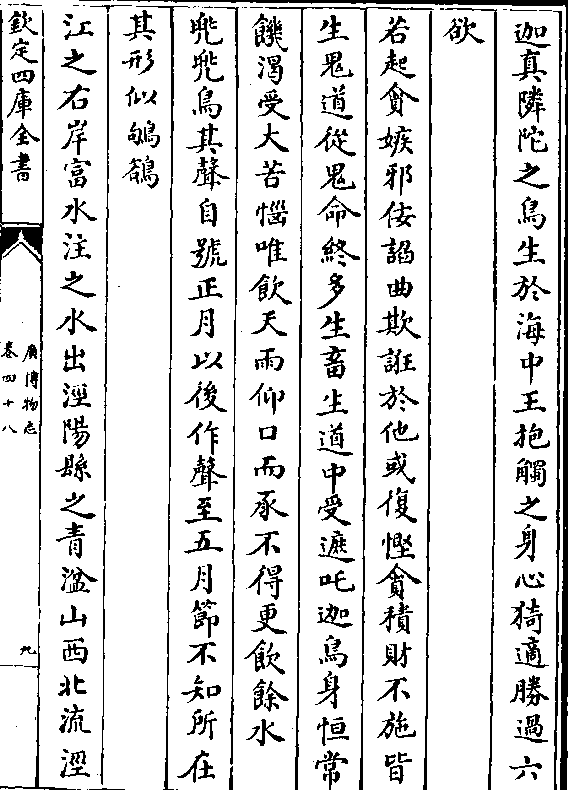 迦真隣陀之鳥生於海中王抱觸之身心猗適勝過六
欲
若起貪嫉邪佞諂曲欺誑於他或復慳貪積財不施皆
生鬼道從鬼命終多生畜生道中受遮吒迦鳥身恒常
饑渴受大苦惱唯飲天雨仰口而承不得更飲餘水
兠兠鳥其聲自號正月以後作聲至五月節不知所在
其形似鴝鵒
江之右岸富水注之水出涇陽縣之青湓山西北流涇
欽定四庫全書
廣博物志
卷四十八
九